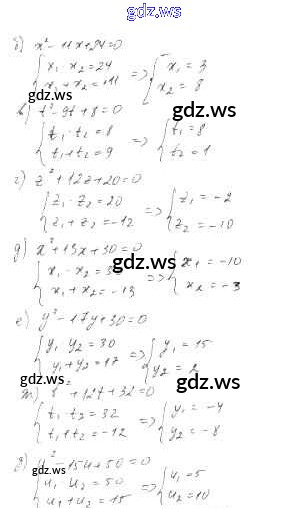 gdz.ws
б) x² - 11x + 24 = 0
{ x₁ · x₂ = 24
x₁ + x₂ = 11 => { x₁ = 3
x₂ = 8
gdz.ws
в) t² - 9t + 8 = 0
{ t₁ · t₂ = 8
t₁ + t₂ = 9 => { t₁ = 8
t₂ = 1
gdz.ws
г) z² + 12z + 20 = 0
{ z₁ · z₂ = 20
z₁ + z₂ = -12 => { z₁ = -2
z₂ = -10
gdz.ws
д) x² + 13x + 30 = 0
{ x₁ · x₂ = 30
x₁ + x₂ = -13 => { x₁ = -10
x₂ = -3
gdz.ws
gdz.ws
е) y² - 17y + 30 = 0
{ y₁ y₂ = 30
y₁ + y₂ = 17 => { y₁ = 15
y₂ = 2
gdz.ws
+ 12t + 32 = 0
{ t₁ · t₂ = 32
t₁ + t₂ = -12 => { y₁ = -4
y₂ = -8
gdz.ws
u² - 15u + 50 = 0
{ u₁ · u₂ = 50
u₁ + u₂ = 15 => { u₁ = 5
u₂ = 10
gdz.ws
gdz.ws